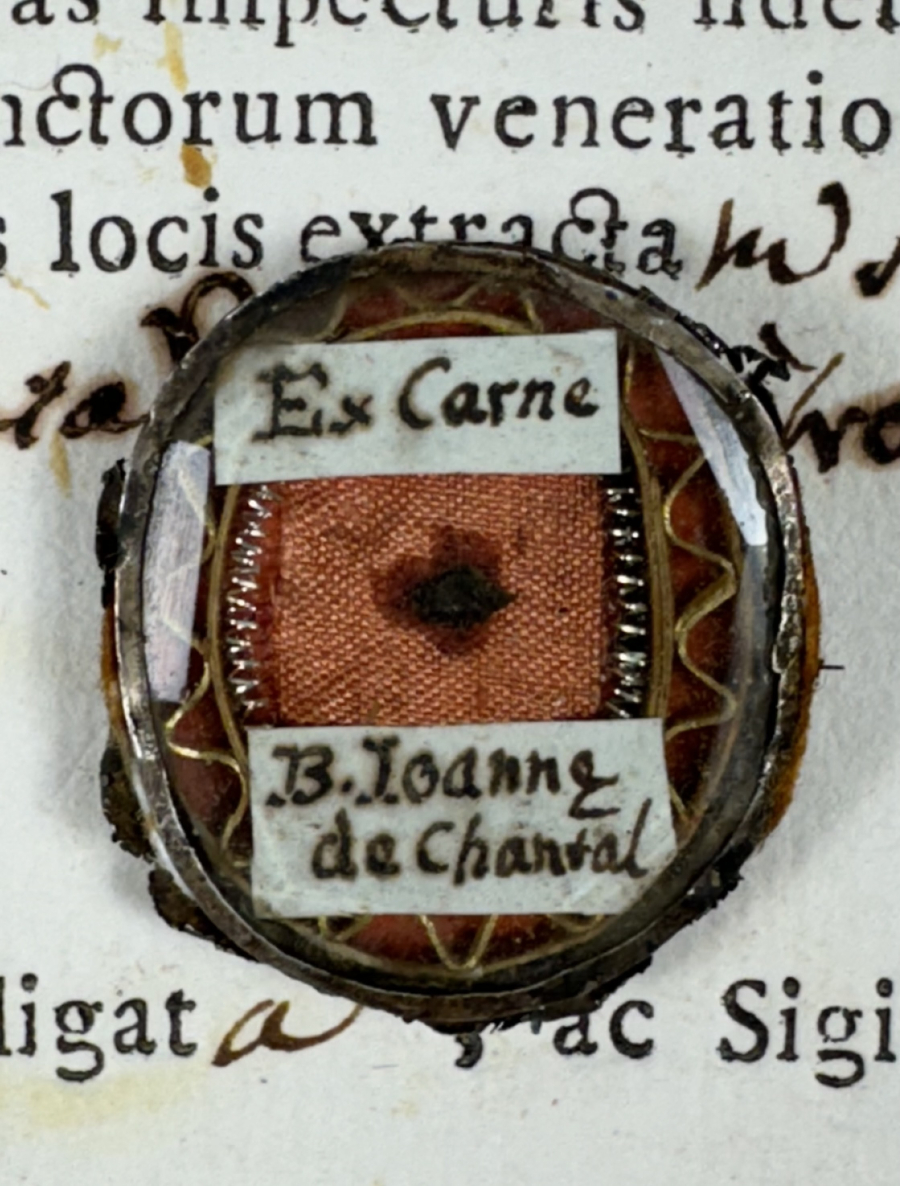 as impecturis fidel
nctorum veneratio
s locis extracta
Ex Carne
B. Ioannę
de Chantal
ligat a , ac Sigi